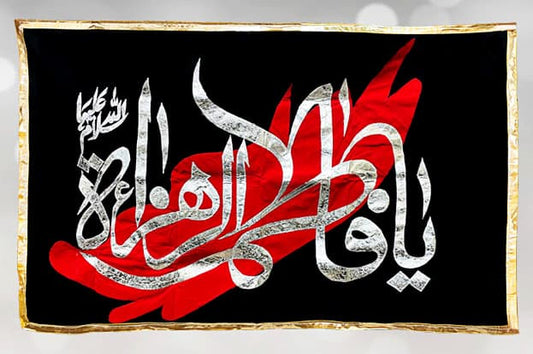 يا فاطمة الزهراء
سلام الله عليها